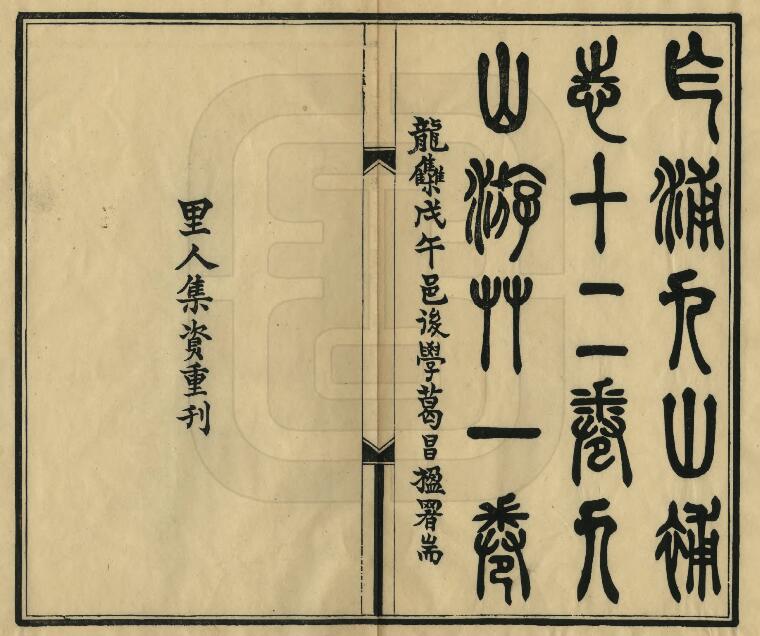 乍浦九山補
志十二卷九
山游艸一卷
龍雧戊午邑後學葛昌楹署耑
里人集資重刊